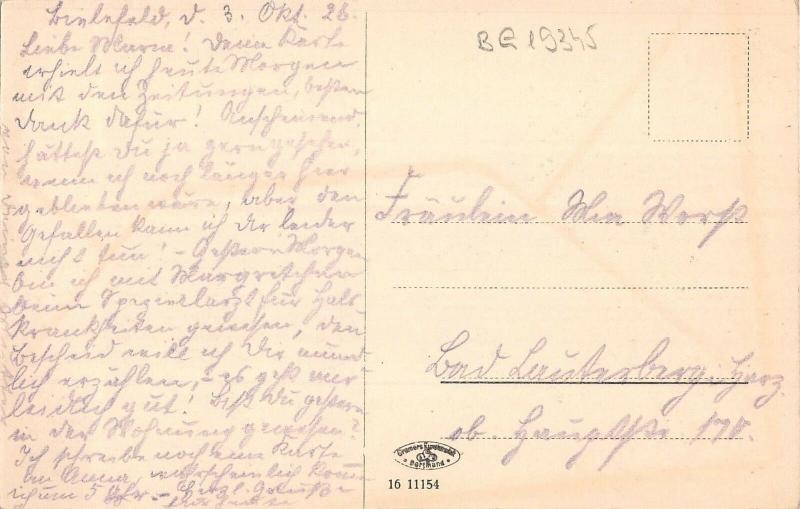 Bielefeld, d. 3. Okt. 26.
Liebe Maria! Deine Karte
erhielt ich heute Morgen
mit den Zeitungen, besten
Dank dafür! Anscheinend
hättest Du ja gern gesehen,
wenn ich noch länger hier
geblieben wäre, aber den
Gefallen kann ich Dir leider
nicht tun! - Gestern Morgen
bin ich mit Margretchen
beim Spezialarzt für Hals
krankheiten gewesen, den
Bescheid will ich Dir münd-
lich erzählen, - es geht mir
leidlich gut! Bist Du gestern
in der Wohnung gewesen?
Ich schreibe noch eine Karte
an Anna, wahrscheinlich komme
ich um 5 Uhr - Herzl. Grüße
BE 19345
Fräulein Mia
Bad Lauterberg, Harz
ob. Hauptstr. 170.
Cramers Kunstanstalt
Dortmund
16 11154